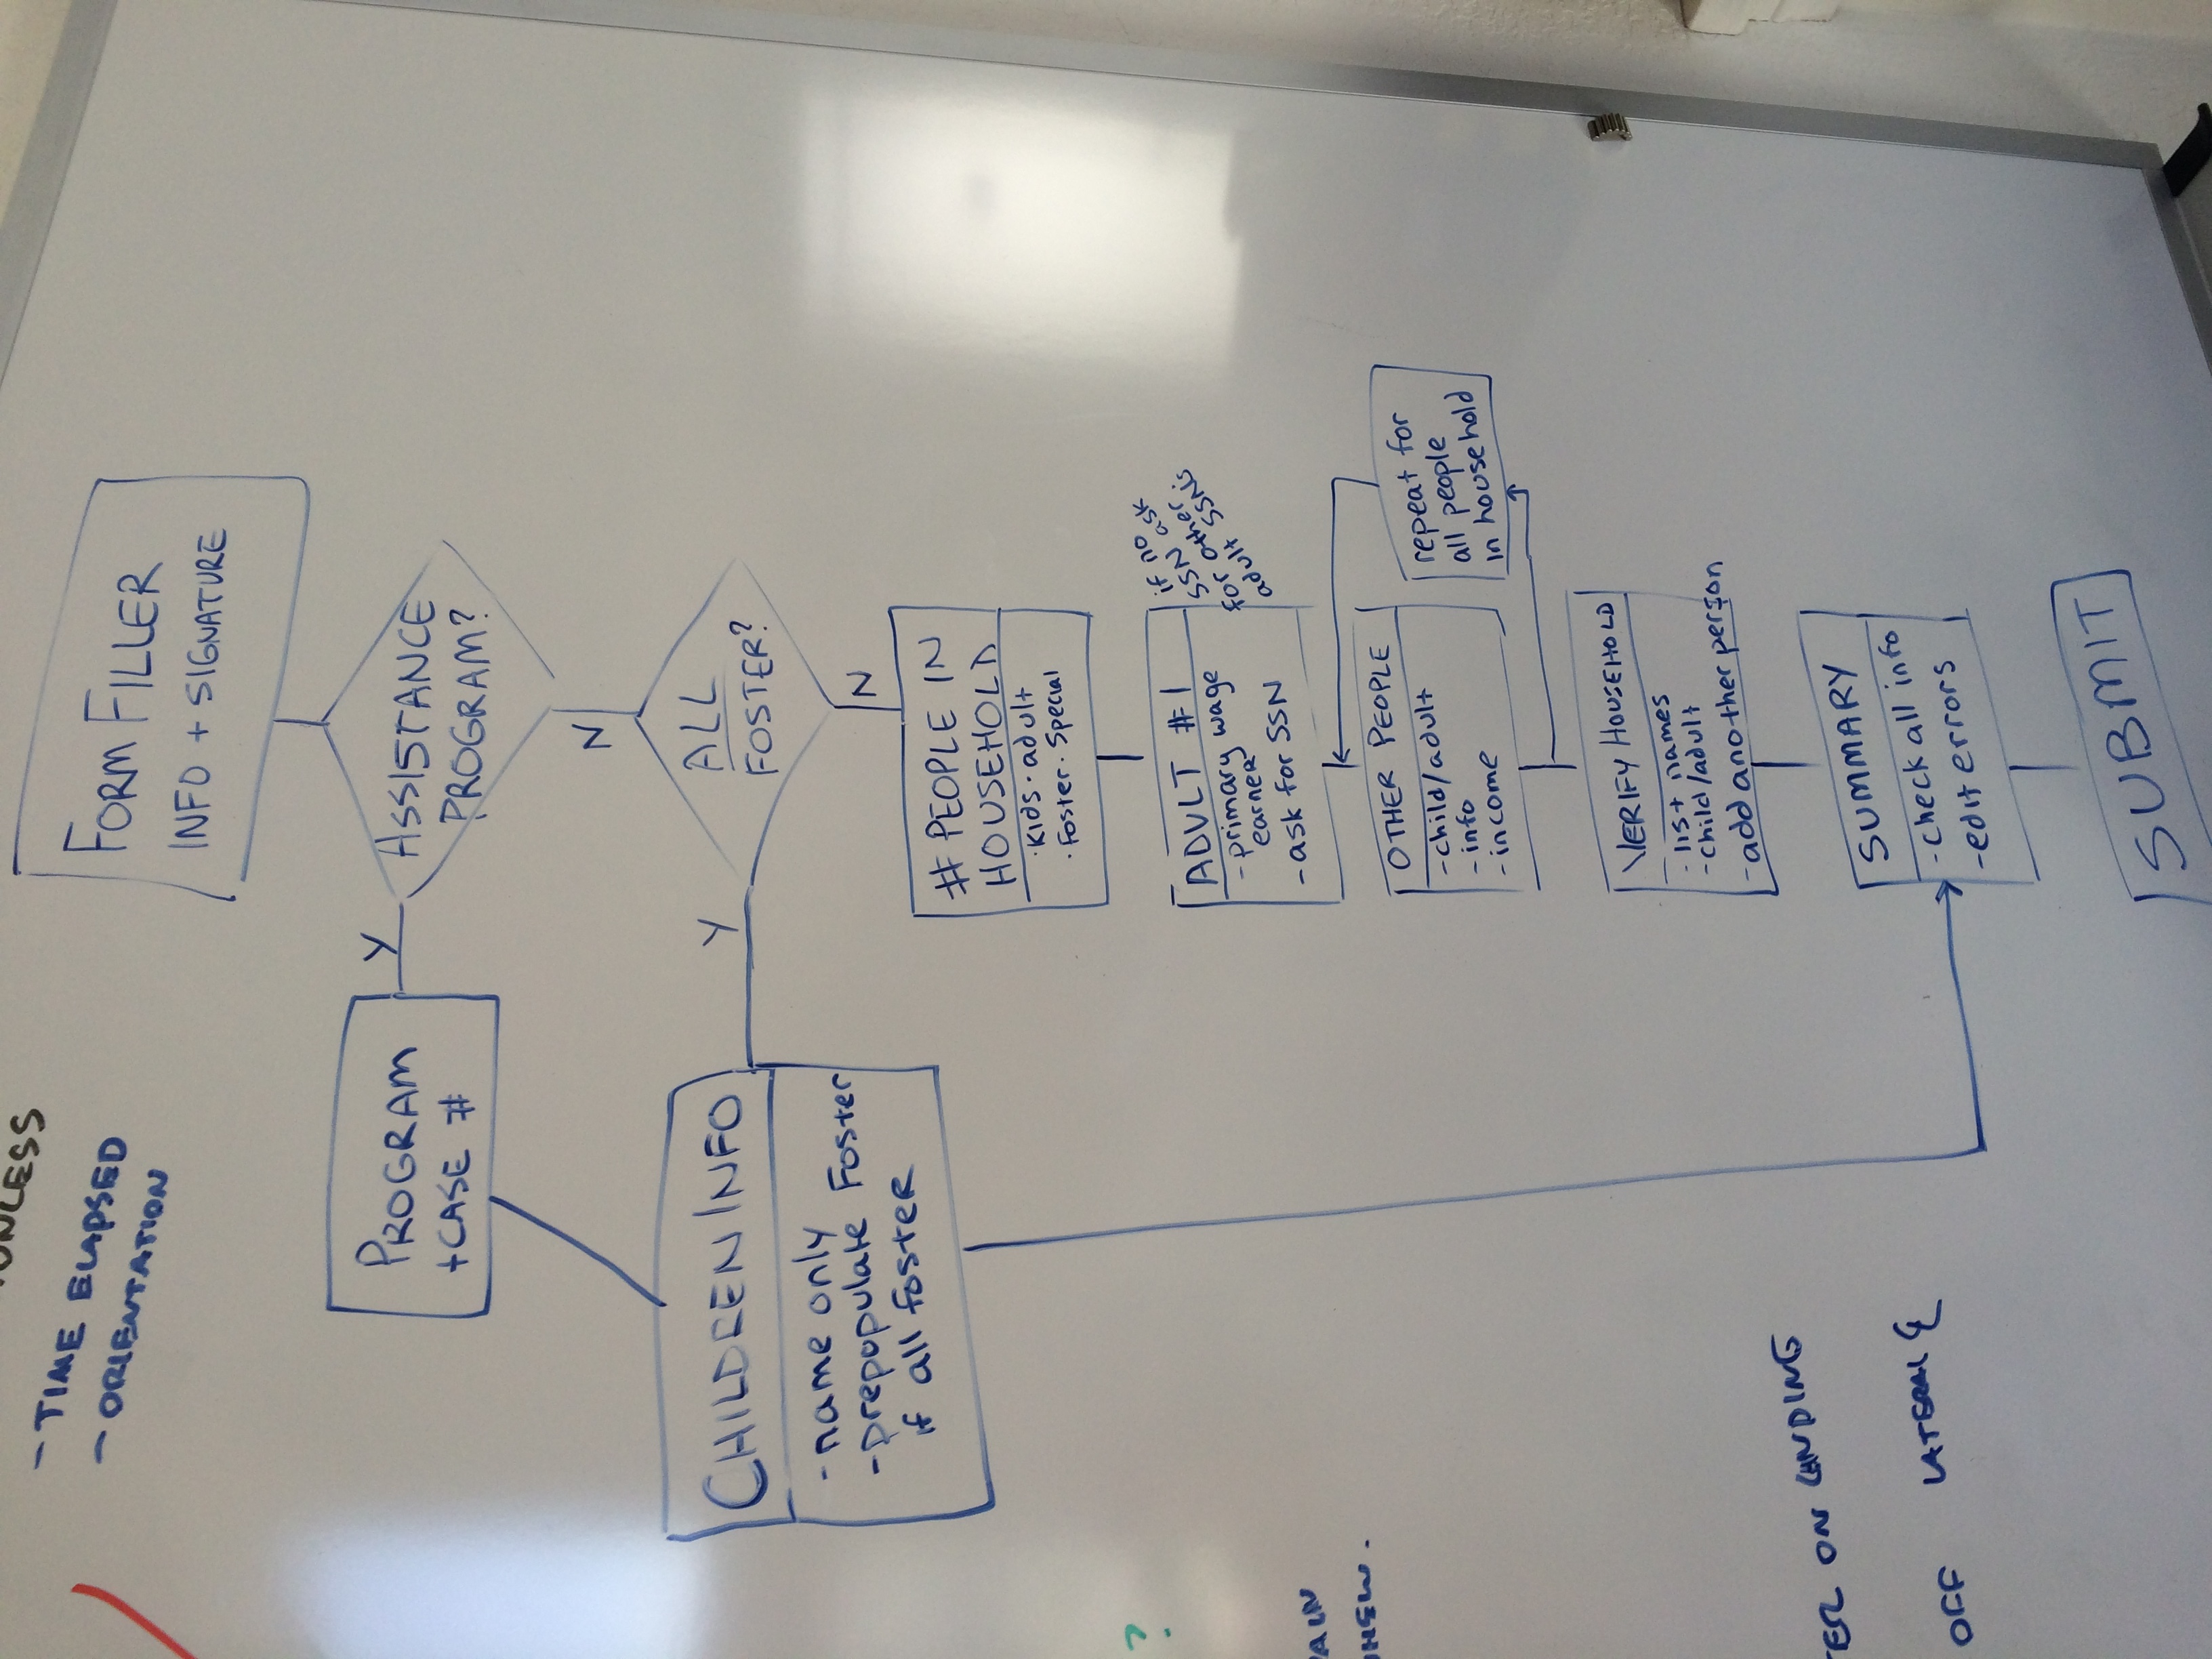 - TIME ELAPSED
- ORIENTATION
FORM FILLER
INFO + SIGNATURE
PROGRAM
+CASE #
Y
ASSISTANCE
PROGRAM?
N
CHILDREN INFO
- name only
- prepopulate Foster
if all foster
Y
ALL
FOSTER?
N
# PEOPLE IN
HOUSEHOLD
· Kids · adult
· Foster · Special
ADULT #1
- primary wage
earner
- ask for SSN
if no
SSN ask
for other
adult SSN's
OTHER PEOPLE
- child/adult
- info
- income
repeat for
all people
in household
VERIFY HOUSEHOLD
- list names
- child/adult
- add another person
SUMMARY
- check all info
- edit errors
SUBMIT
?
ON LANDING
OFF LATERAL